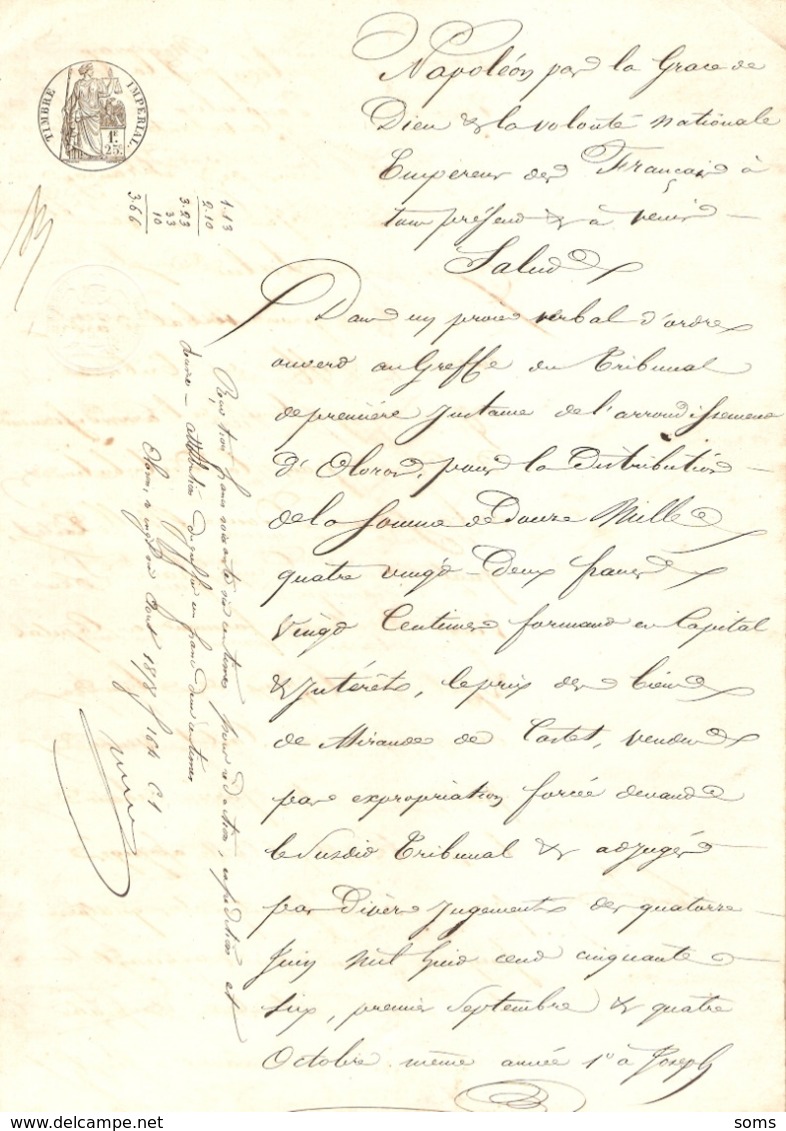 TIMBRE IMPERIAL.
1F.
25C.
Napoléon par la Grace de
Dieu & la volonté nationale
Empereur des Français à
tous présens & à venir
Salut
Dans un procès verbal d'ordre
ouvert au Greffe du Tribunal
de première Instance de l'arrondissement
d'Oloron, pour la Distribution
de la Somme de Douze Mille
quatre vingt-Deux francs
Vingt Centimes formant en Capital
& Intérêts, le prix des biens
de Mirande de Castet, vendus
par expropriation forcée devant
le Susdit Tribunal & adjugés
par Divers Jugements des quatorze
Juin Mil huit cent cinquante
six, premier Septembre & quatre
Octobre même année 1º à Joseph
1.13
2.10
3.23
33
10
3.66
Reçu trois francs soixante six centimes pour rédaction, expédition et
Oloron, vingt août
soms